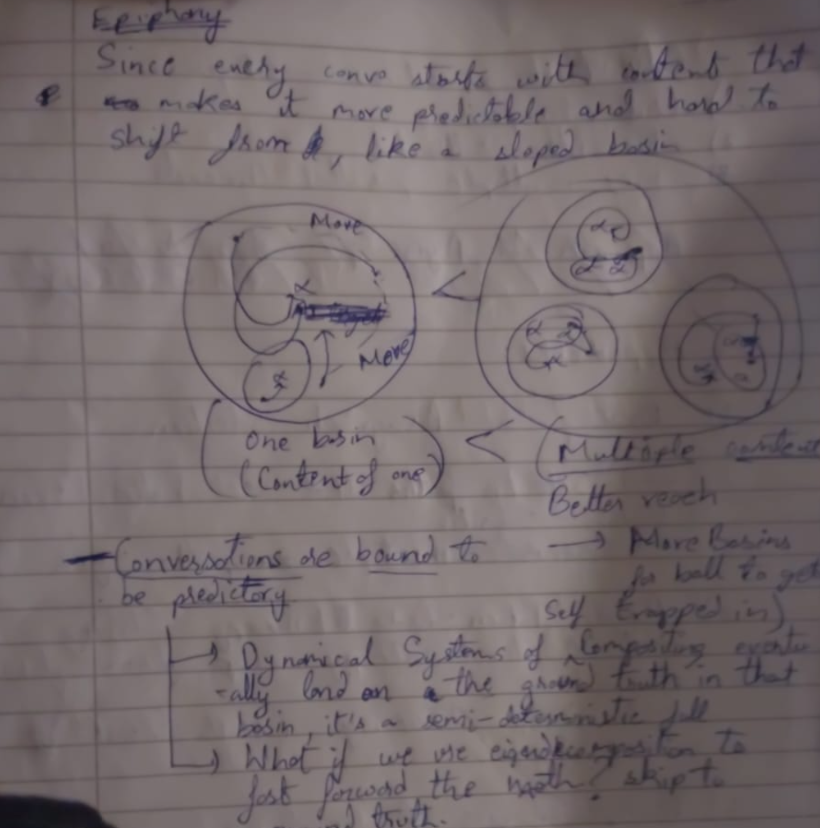 Epiphony
Since every convo starts with content that
makes it more predictable and hard to
shift from , like a sloped basin
More
α
<
More
One basin
(Content of one)
<
(Multiple
Better reach
→ More Basins
for ball to get
Self trapped in)
— Conversations are bound to
be predictory
→ Dynamical Systems of Compositing eventu
-ally land on the ground truth in that
basin, it's a semi-deterministic fall
→ What if we use eigendecomposition to
fast forward the math? skip to
truth.